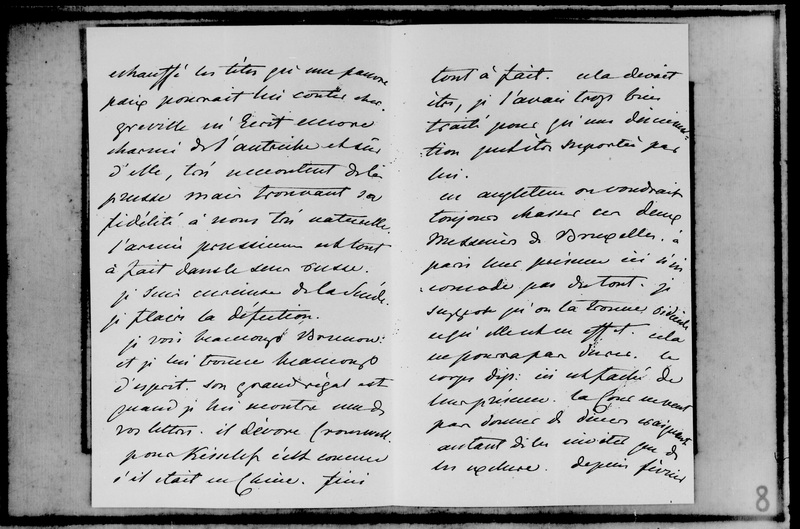 echauffé les têtes qu'une pauvre
paix pourrait lui conter cher.
greville m'écrit encore
charmé de l'autriche et sûr
d'elle, très mécontent de la
prusse mais trouvant sa
fidélité à nous très naturelle.
l'armée prussienne est tout
à fait dans le sens russe.
je suis curieuse de la Suède.
je plains la défection.
je vois beaucoup Brunow
et je lui trouve beaucoup
d'esprit. son grand régal est
quand je lui montre une de
vos lettres. il dévore Cromwell.
pour Kisselef c'est comme
s'il était en Chine. fini
tout à fait. cela devait
être, je l'avais trop bien
traité pour qu'une diminu-
tion put être supportée par
lui.
en angleterre on voudrait
toujours chasser ces deux
Messieurs de Bruxelles. à
paris leur présence ici n'in
comode pas du tout. je
suppose qu'on la trouve ridicule
ce qu'elle est en effet. cela
ne pourra pas durer. le
corps dip: ici est faché de
leur présence. la Cour ne veut
pas donner de diners craignant
autant de les inviter que de
les exclure. depuis février
8